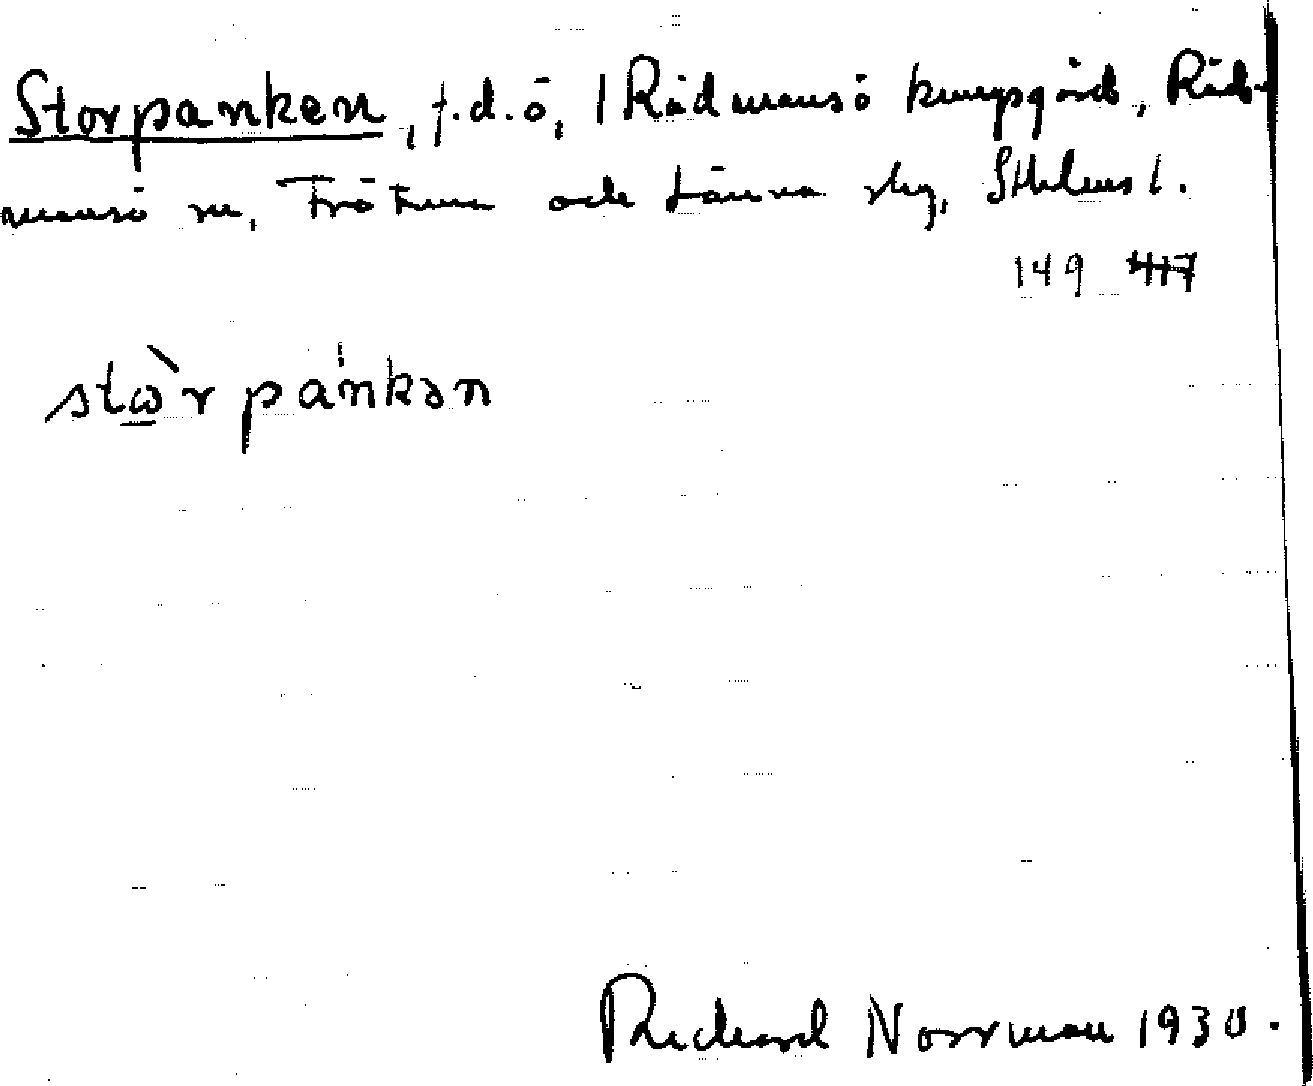 Storpanken, f.d. ö, 1 Rådmansö kungsgård, Råd-
mansö sn, Frötuna och Länna slg, Sthlms l.
149 417
stωr pankən
Richard Norrman 1930.